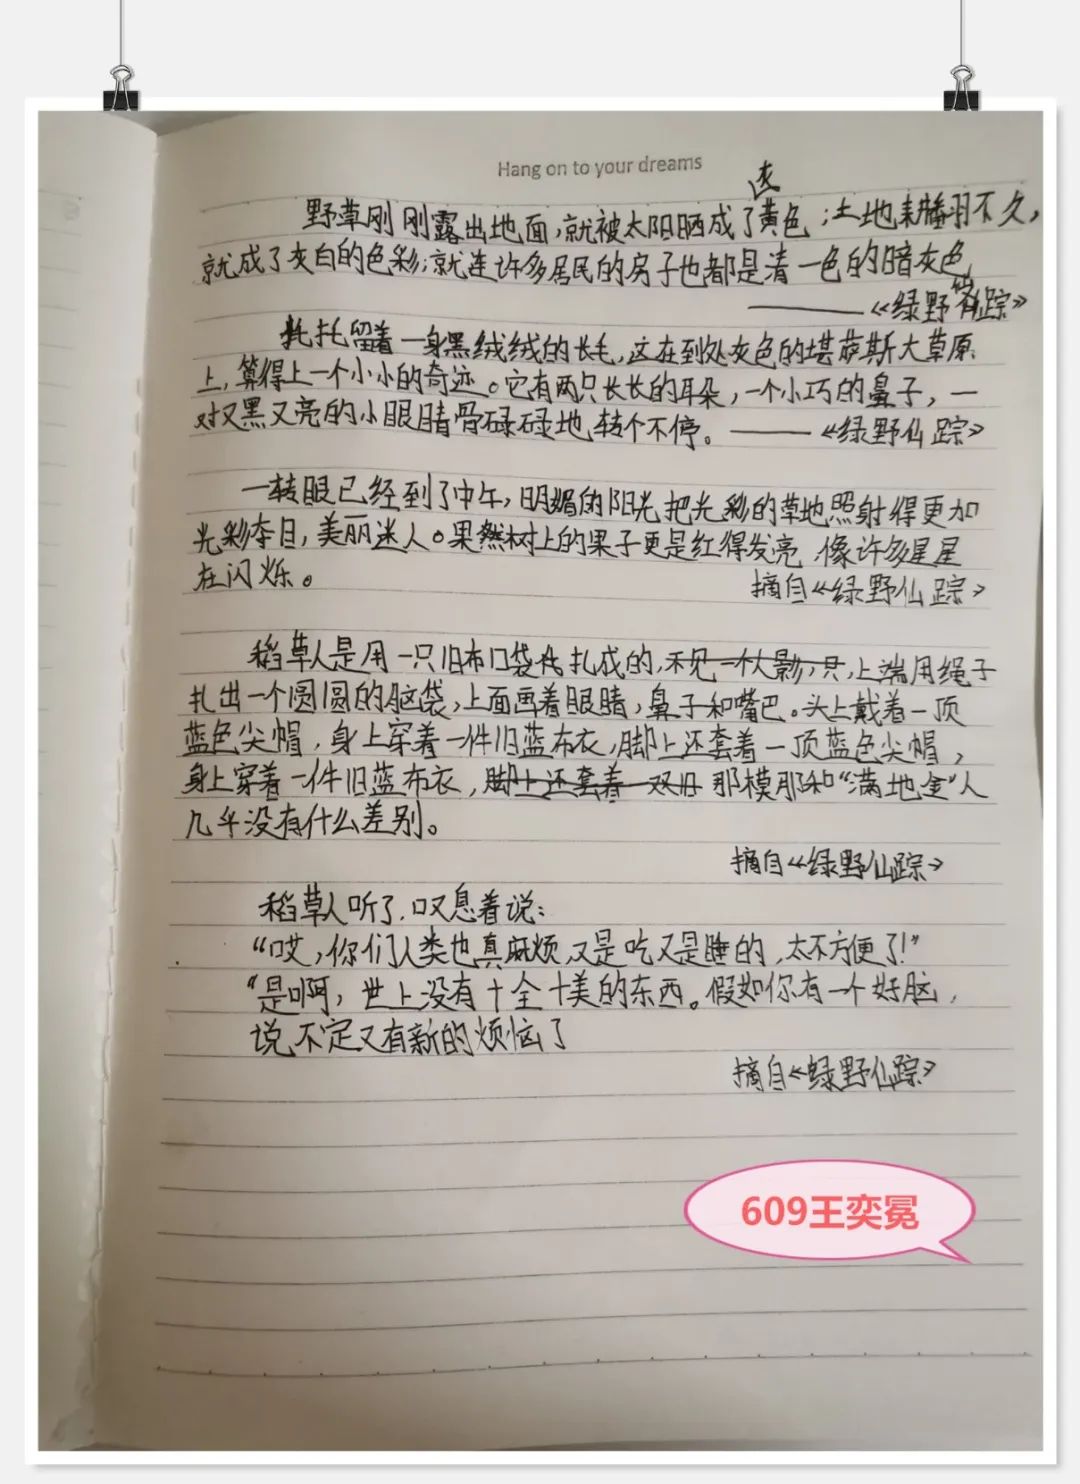 Hang on to your dreams
灰
野草刚刚露出地面，就被太阳晒成了黄色；土地耕翻不久，
就成了灰白的色彩；就连许多居民的房子也都是清一色的暗灰色
——《绿野仙踪》
托托留着一身黑绒绒的长毛，这在到处灰色的堪萨斯大草原
上，算得上一个小小的奇迹。它有两只长长的耳朵，一个小巧的鼻子，一
对又黑又亮的小眼睛骨碌碌地转个不停。——《绿野仙踪》
一转眼已经到了中午，明媚的阳光把光彩的草地照射得更加
光彩夺目，美丽迷人。果然树上的果子更是红得发亮 像许多星星
在闪烁。
摘自《绿野仙踪》
稻草人是用一只旧布口袋扎成的，不见一个人影，只，上端用绳子
扎出一个圆圆的脑袋，上面画着眼睛，鼻子和嘴巴。头上戴着一顶
蓝色尖帽，身上穿着一件旧蓝布衣，脚上还套着一顶蓝色尖帽，
身上穿着一件旧蓝布衣，脚上还套着一双旧 那模那和“满地金”人
几乎没有什么差别。
摘自《绿野仙踪》
稻草人听了，叹息着说：
“哎，你们人类也真麻烦，又是吃又是睡的，太不方便了！”
“是啊，世上没有十全十美的东西。假如你有一个好脑，
说不定又有新的烦恼了
摘自《绿野仙踪》
609王奕冕